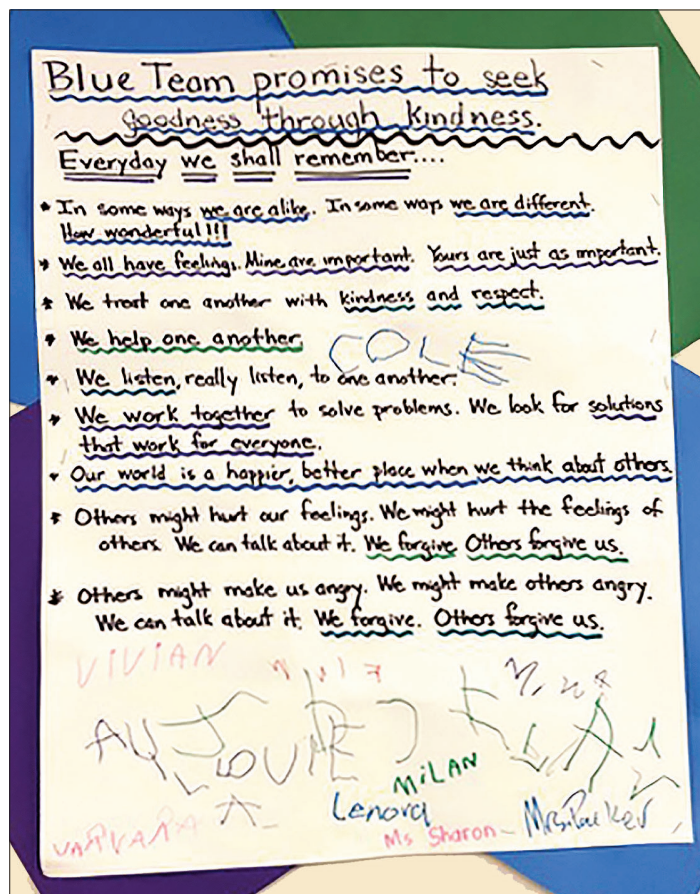 Blue Team promises to seek
goodness through kindness.
Everyday we shall remember....
* In some ways we are alike. In some ways we are different.
How wonderful!!!
* We all have feelings. Mine are important. Yours are just as important.
* We treat one another with kindness and respect.
* We help one another.
COLE
* We listen, really listen, to one another.
* We work together to solve problems. We look for solutions
that work for everyone.
* Our world is a happier, better place when we think about others.
* Others might hurt our feelings. We might hurt the feelings of
others. We can talk about it. We forgive Others forgive us.
* Others might make us angry. We might make others angry.
We can talk about it. We forgive. Others forgive us.
VIVIAN
MiLAN
Lenora
VARVARA
Ms Sharon
Mrs. Parker